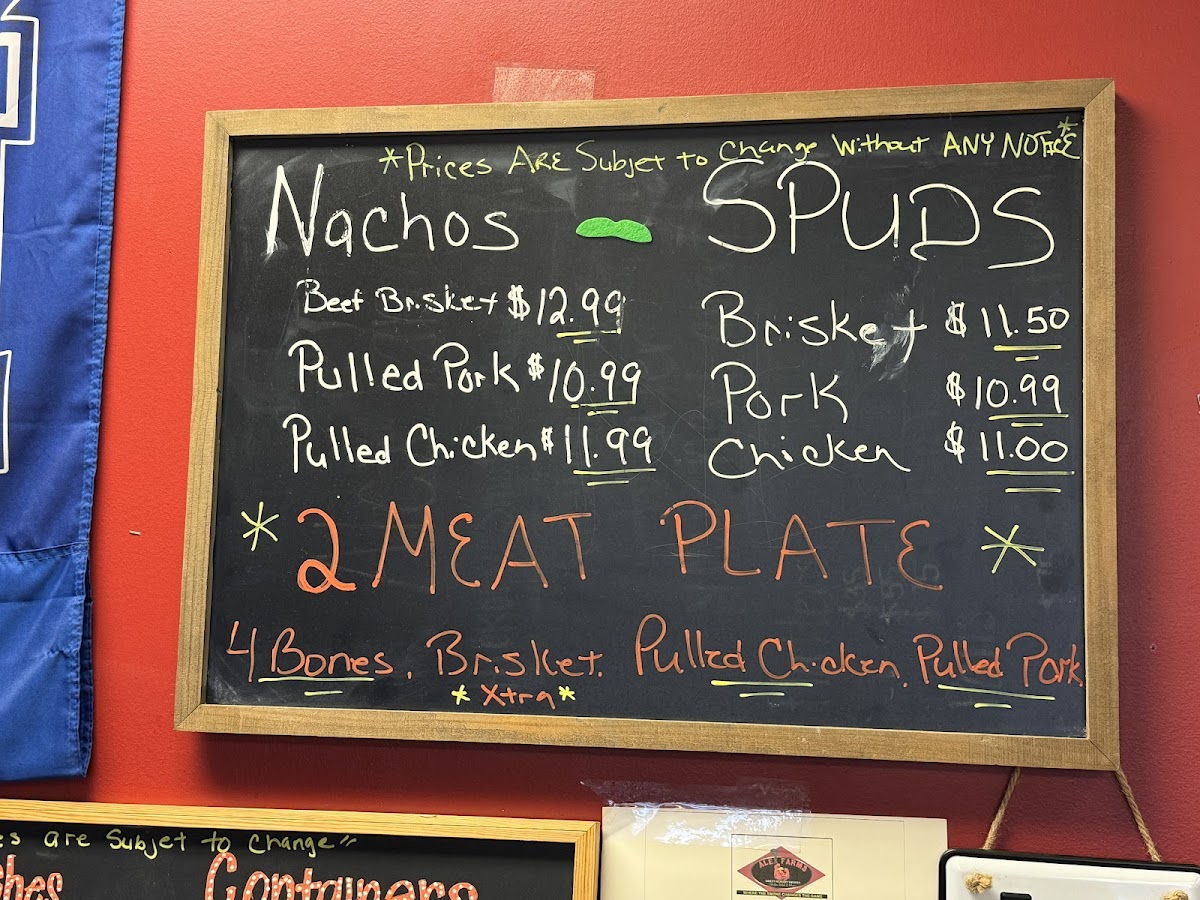 *Prices ARE Subjet to Change Without ANY NOTICE*
Nachos - SPUDS
Beef Brisket $12.99
Pulled Pork $10.99
Pulled Chicken $11.99
Brisket $11.50
Pork $10.99
Chicken $11.00
* 2 MEAT PLATE *
4 Bones, Brisket, Pulled Chicken, Pulled Pork
*Xtra*
are Subjet to change"
Containers
ALEX FARMS